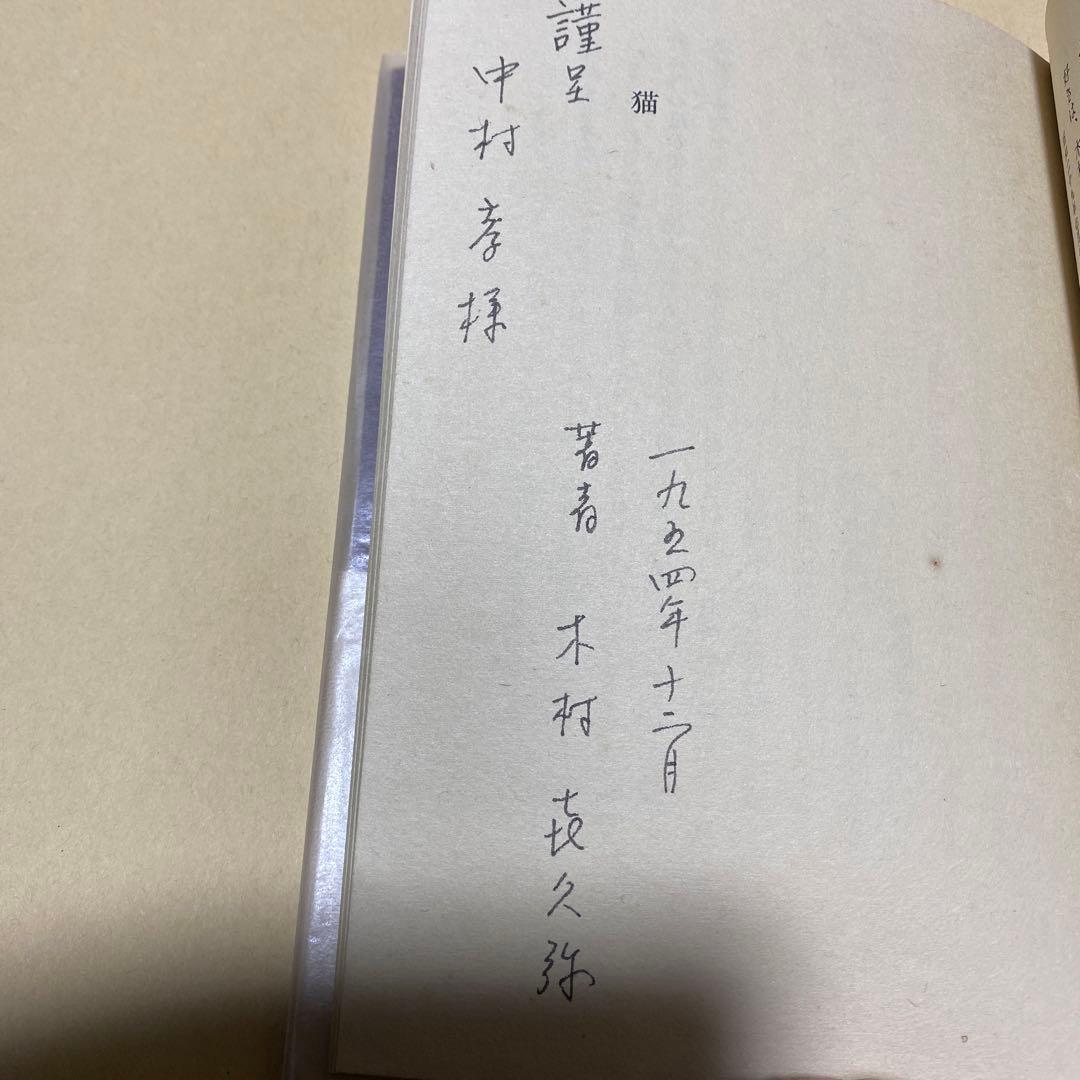 猫
謹呈
中村孝様
一九五四年十二月
著者 木村㐂久弥